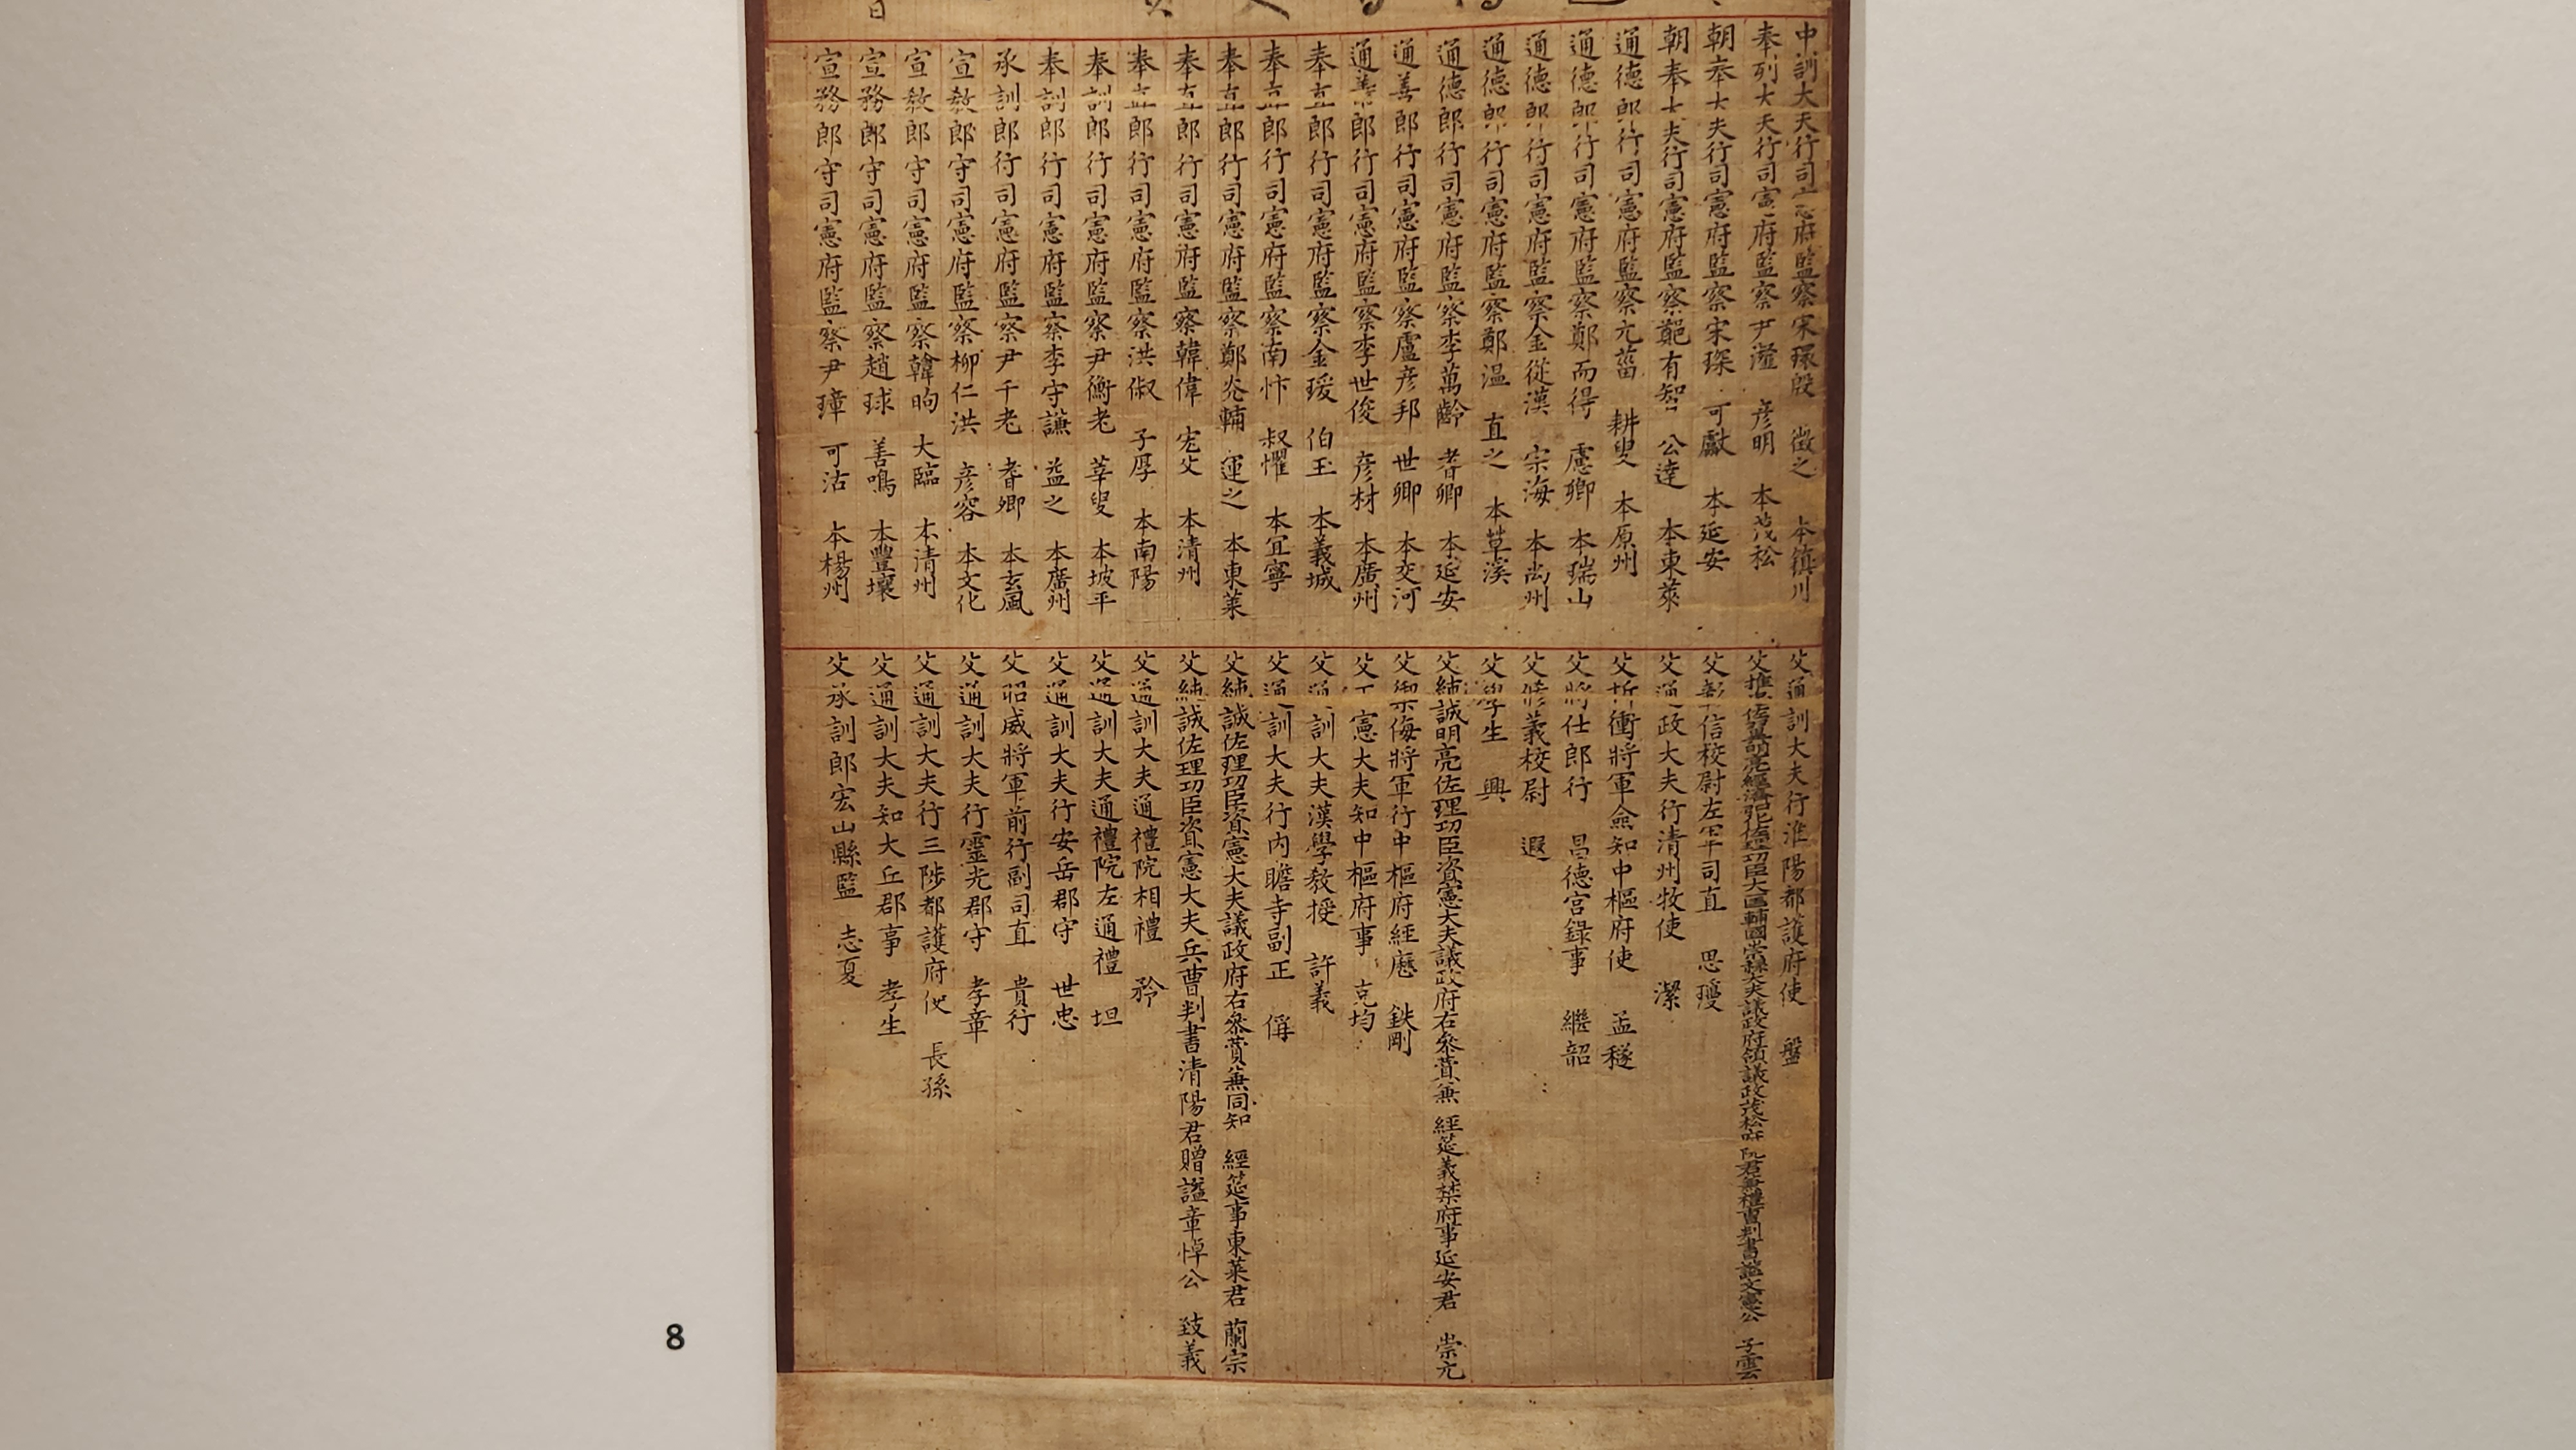 中訓大夫行司憲府監察宋環殷 徵之 本鎮川
奉列大夫行司憲府監察尹瀣 彦明 本茂松
朝奉大夫行司憲府監察宋琛 可獻 本延安
朝奉大夫行司憲府監察鄭有智 公達 本東萊
通德郎行司憲府監察元菑 耕叟 本原州
通德郎行司憲府監察鄭而得 慮卿 本瑞山
通德郎行司憲府監察金從漢 宗海 本尙州
通德郎行司憲府監察鄭温 直之 本草溪
通德郎行司憲府監察李萬齡 耆卿 本延安
通善郎行司憲府監察盧彦邦 世卿 本交河
通善郎行司憲府監察李世俊 彦材 本廣州
奉直郎行司憲府監察金瑗 伯玉 本義城
奉直郎行司憲府監察南忭 叔懼 本宜寧
奉直郎行司憲府監察鄭光輔 運之 本東萊
奉直郎行司憲府監察韓偉 宏父 本清州
奉直郎行司憲府監察洪俶 子厚 本南陽
奉訓郎行司憲府監察尹衡老 莘叟 本坡平
奉訓郎行司憲府監察李守謙 益之 本廣州
承訓郎行司憲府監察尹千老 耆卿 本玄風
宣敎郎守司憲府監察柳仁洪 彦容 本文化
宣敎郎守司憲府監察韓昫 大臨 本清州
宣務郎守司憲府監察趙球 善鳴 本豐壤
宣務郎守司憲府監察尹璋 可沽 本楊州
父通訓大夫行淮陽都護府使 盤
父推忠佐翼明亮經濟弘化佐理功臣大匡輔國崇祿大夫議政府領議政茂松府院君兼禮曹判書諡文憲公 子雲
父彰信校尉左軍司直 思瓊
父通政大夫行清州牧使 潔
父折衝將軍僉知中樞府使 孟穟
父將仕郎行 昌德宮錄事 繼韶
父修義校尉 遐
父學生 興
父純誠明亮佐理功臣資憲大夫議政府右參贊兼 經筵義禁府事延安君 崇元
父禦侮將軍行中樞府經歷 鉄剛
父正憲大夫知中樞府事 克均
父通訓大夫漢學敎授 許義
父通訓大夫行內瞻寺副正 偁
父純誠佐理功臣資憲大夫議政府右參贊兼同知 經筵事東萊君 蘭宗
父純誠佐理功臣資憲大夫兵曹判書清陽君贈諡章悼公 致義
父通訓大夫通禮院相禮 矜
父通訓大夫通禮院左通禮 坦
父通訓大夫行安岳郡守 世忠
父昭威將軍前行副司直 貴行
父通訓大夫行靈光郡守 孝章
父通訓大夫行三陟都護府使 長孫
父通訓大夫知大丘郡事 孝生
父承訓郎宏山縣監 志夏
8